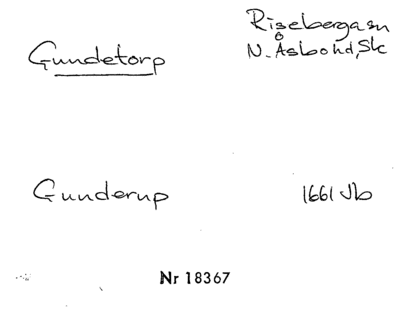 Riseberga sn
Gundetorp
N. Åsbo hd, Sk
Gunderup
1661 Jb
Nr 18367